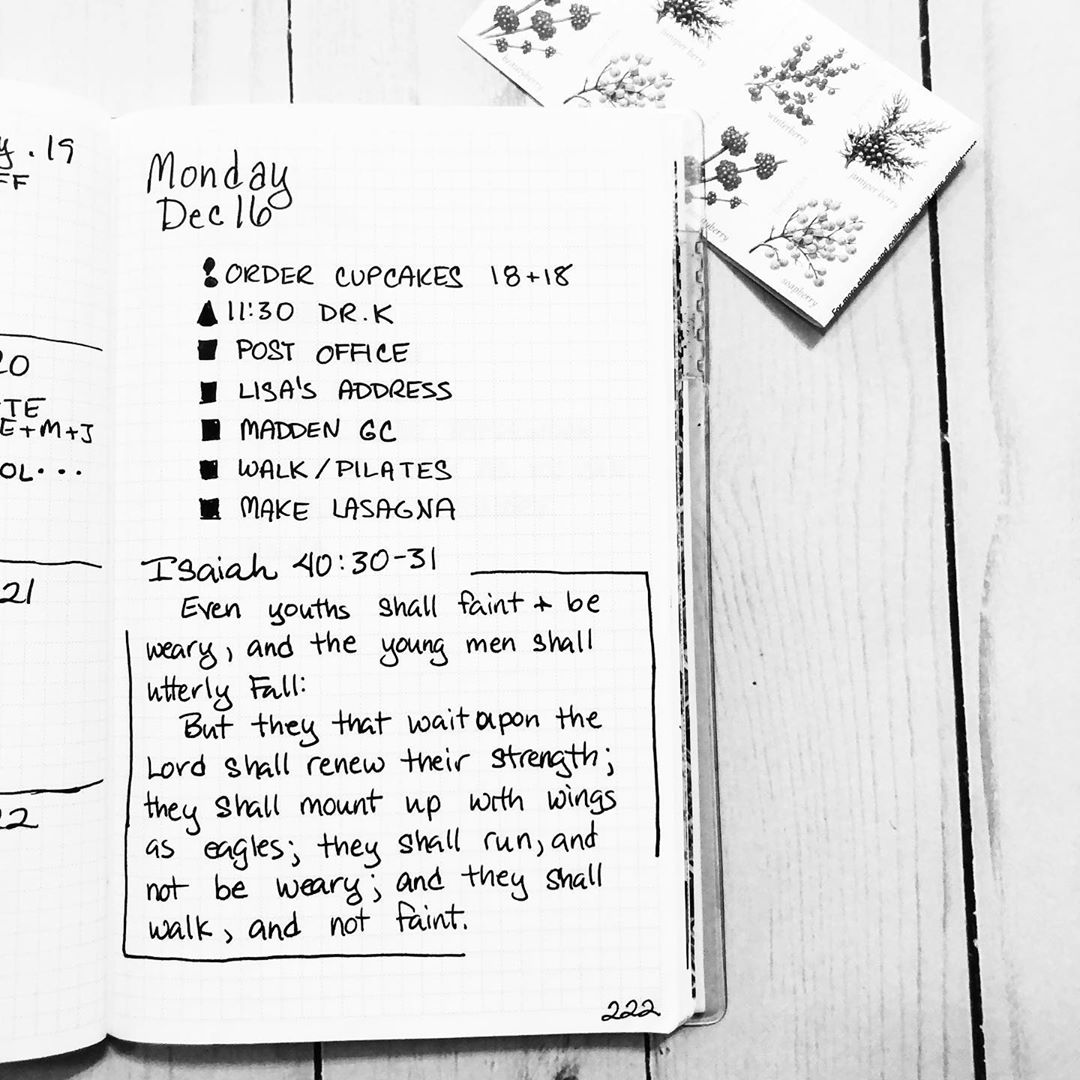 y.19
FF
20
TE
E+M+J
OL...
21
22
Monday
Dec 16
ORDER CUPCAKES 18+18
11:30 DR.K
POST OFFICE
LISA'S ADDRESS
MADDEN GC
WALK/PILATES
MAKE LASAGNA
Isaiah 40:30-31
Even youths shall faint + be
weary, and the young men shall
utterly Fall:
But they that wait upon the
Lord shall renew their strength;
they shall mount up with wings
as eagles; they shall run, and
not be weary; and they shall
walk, and not faint.
222
juniper berry
winterberry
juniper berry
soapberry